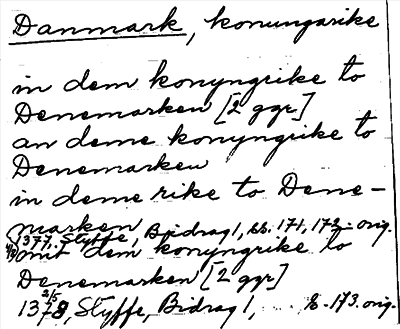 Danmark, konungarike
in dem konyngrike to
Denemarken [2 ggr.]
an deme konyngrike to
Denemarken
in deme rike to Dene-
marken
1377, Styffe, Bidrag 1, ss. 171, 172 - orig.
mit dem konyngrike to
Denemarken [2 ggr]
1378, Styffe, Bidrag 1, s. 173. orig.